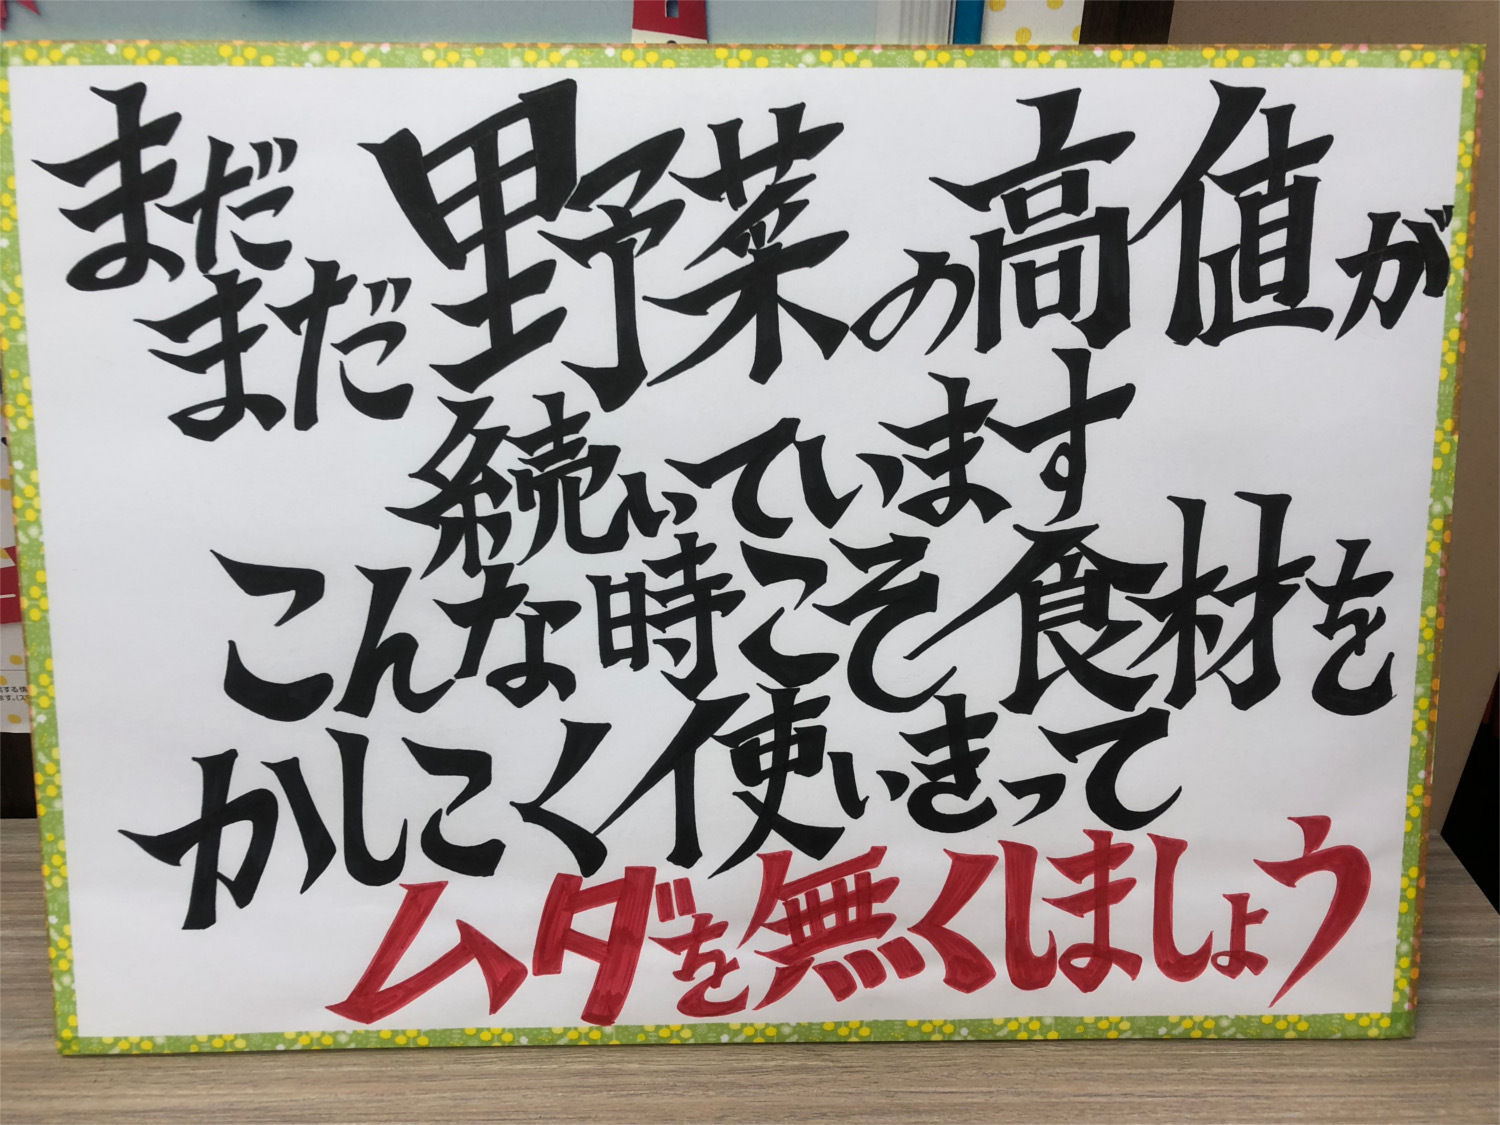 まだまだ野菜の高値が
続いています
こんな時こそ食材を
かしこく使いきって
ムダを無くしましょう